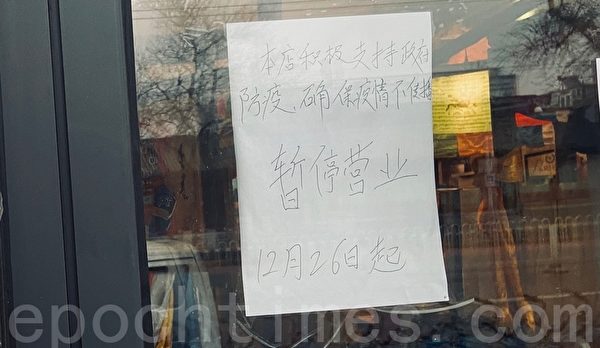 本店积极支持政府
防疫、确保疫情不传播
暂停营业
12月26日起
epochtimes.com